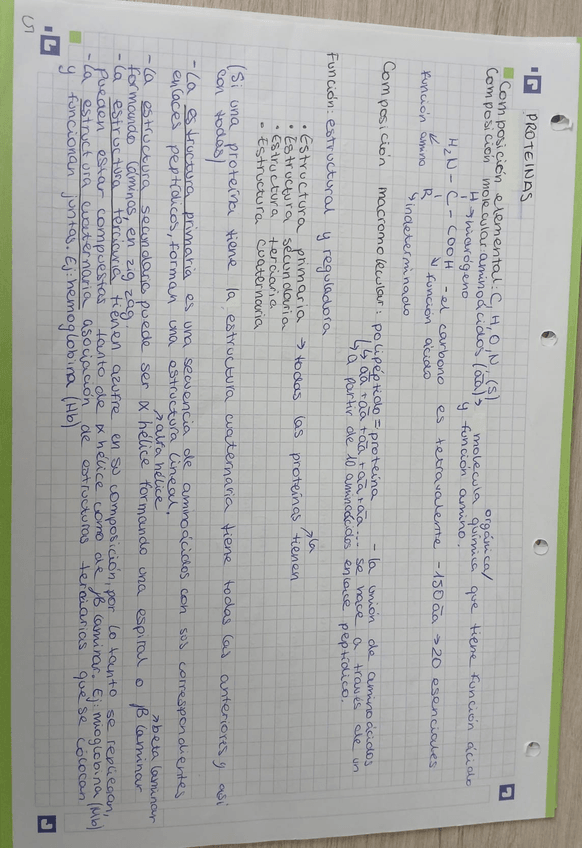 PROTEINAS
Composición elemental: C, H, O, N, (S)
Composición molecular: aminoácidos (āā) → molécula orgánica/química que tiene función ácido
y función amino.
H → hidrógeno
H₂N - C - COOH - el carbono es tetravalente - 150 āā → 20 esenciales
función amino R función ácido
↳ indeterminado
Composición macromolecular: polipéptido = proteína - la unión de aminoácidos
↳ āā + āā + āā + āā... se hace a través de un
↳ a partir de 10 aminoácidos enlace peptídico.
Función: estructural y reguladora
• Estructura primaria → todas las proteínas la tienen
• Estructura secundaria
• Estructura terciaria
• Estructura cuaternaria
(Si una proteína tiene la estructura cuaternaria tiene todas las anteriores y así
con todas)
- La estructura primaria es una secuencia de aminoácidos con sus correspondientes
enlaces peptídicos, forman una estructura lineal.
→ alfa hélice → beta laminar
- La estructura secundaria puede ser α hélice formando una espiral o β laminar
formando láminas, en zig zag.
- La estructura terciaria tienen azufre en su composición, por lo tanto se repliegan,
pueden estar compuestas tanto de α hélice como de β laminar. Ej: mioglobina (Mb)
- La estructura cuaternaria asociación de estructuras terciarias que se colocan
y funcionan juntas. Ej: hemoglobina (Hb)
5